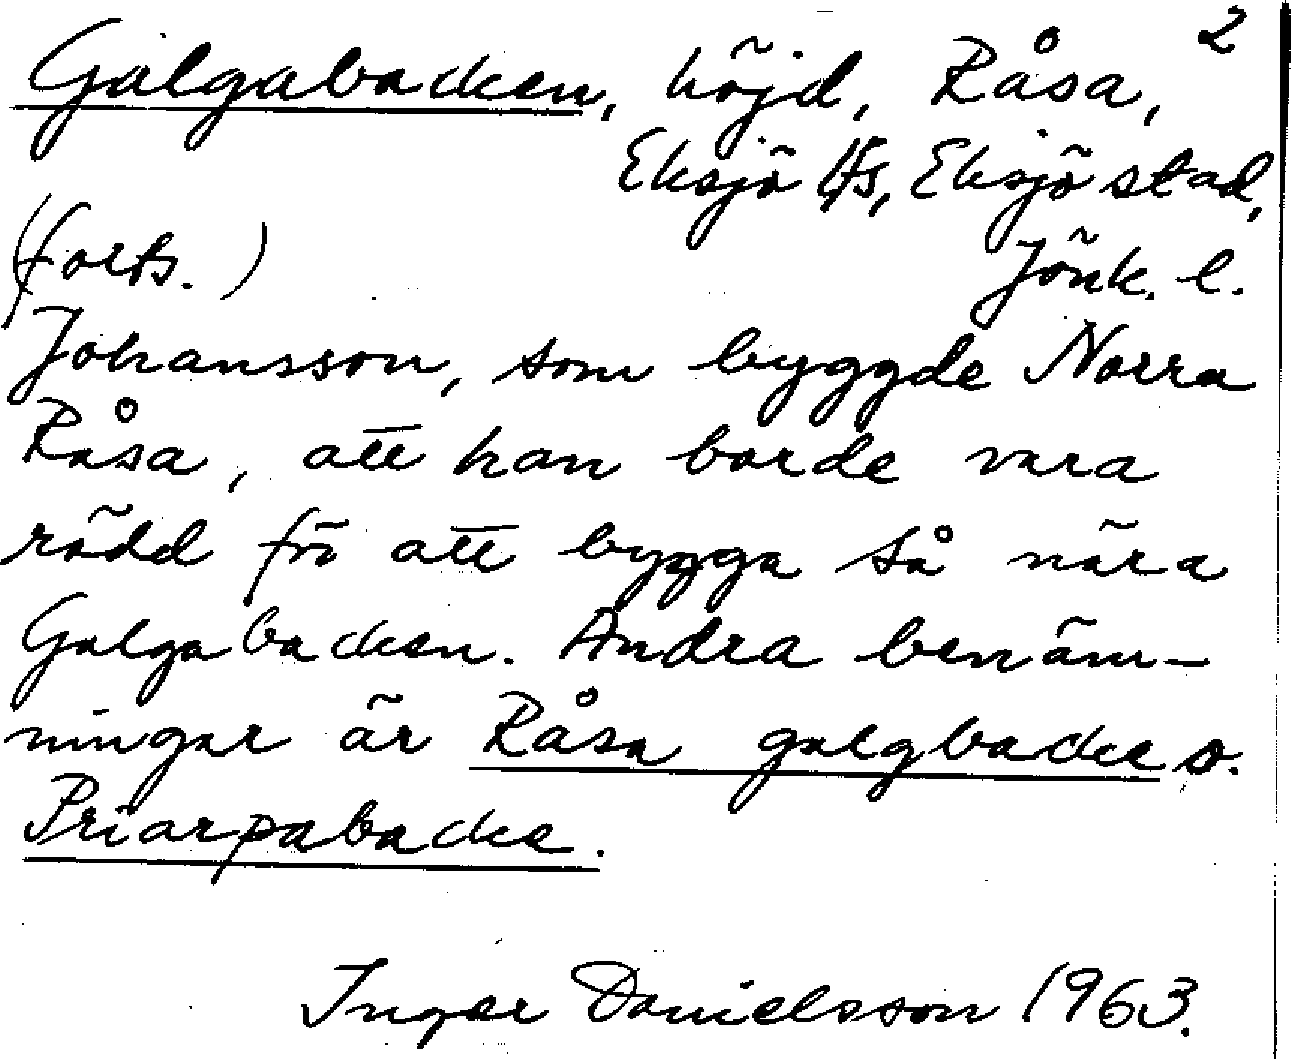 2
Galgabacken, höjd, Råsa,
Eksjö lfs, Eksjö stad,
(forts.) Jönk. l.
Johansson, som byggde Norra
Råsa, att han borde vara
rädd för att bygga så nära
Galgabacken. Andra benäm-
ningar är Råsa galgbacke o.
Priarpabacke.
Inger Danielsson 1963.